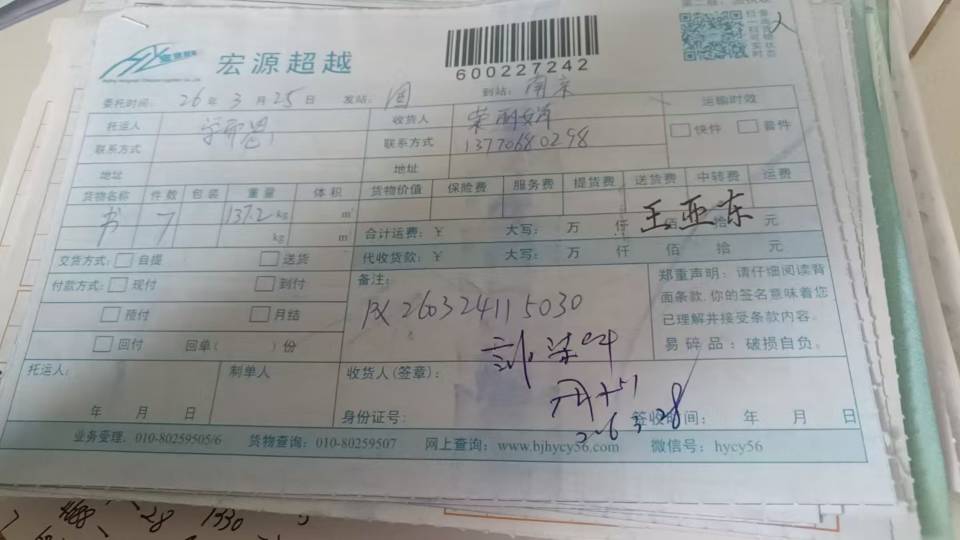 宏源超越
600227242
委托时间: 26 年 3 月 25 日 发站: 到站: 南京
托运人 收货人 运输时效
联系方式 联系方式 13770680298 快件 普件
地址 地址
货物名称 件数 包装 重量 体积 货物价值 保险费 服务费 提货费 送货费 中转费 运费
书 7 137.2 kg m³
合计运费: ¥ 大写: 万 仟 佰 拾 元
王亚东
kg m³
代收货款: ¥ 大写: 万 仟 佰 拾 元
交货方式: 自提 送货
付款方式: 现付 到付
预付 月结
回付 回单( )份
备注:
260324115030
郑重声明: 请仔细阅读背
面条款, 你的签名意味着您
已理解并接受条款内容。
易碎品: 破损自负。
托运人: 制单人 收货人(签章):
年 月 日 身份证号: 签收时间: 年 月 日
26 3 28
业务受理: 010-80259505/6 货物查询: 010-80259507 网上查询: www.bjhycy56.com 微信号: hycy56
28 1330